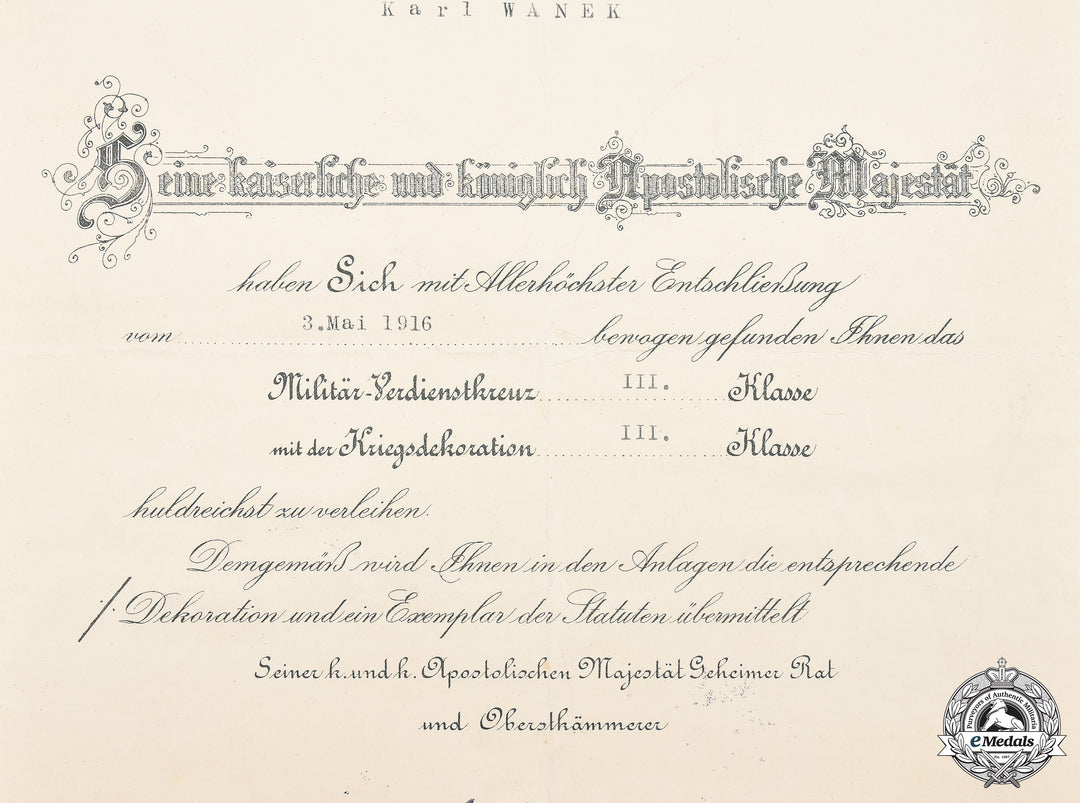 Karl WANEK
Seine kaiserliche und königlich Apostolische Majestät
haben Sich mit Allerhöchster Entschließung
vom 3.Mai 1916 bewogen gefunden Ihnen das
Militär-Verdienstkreuz III. Klasse
mit der Kriegsdekoration III. Klasse
huldreichst zu verleihen.
Demgemäß wird Ihnen in den Anlagen die entsprechende
./ Dekoration und ein Exemplar der Statuten übermittelt
Seiner k. und k. Apostolischen Majestät Geheimer Rat
und Oberstkämmerer
Purveyors of Authentic Militaria
eMedals